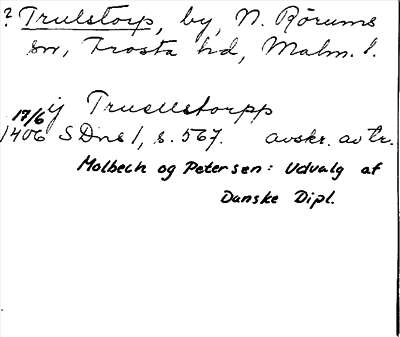 ? Trulstorp, by, N. Rörums
sn, Frosta hd, Malm. l.
ij Truelstorpp
17/6
1406 SDns 1, s. 567. avskr. av tr.
Molbech og Petersen: Udvalg af
Danske Dipl.